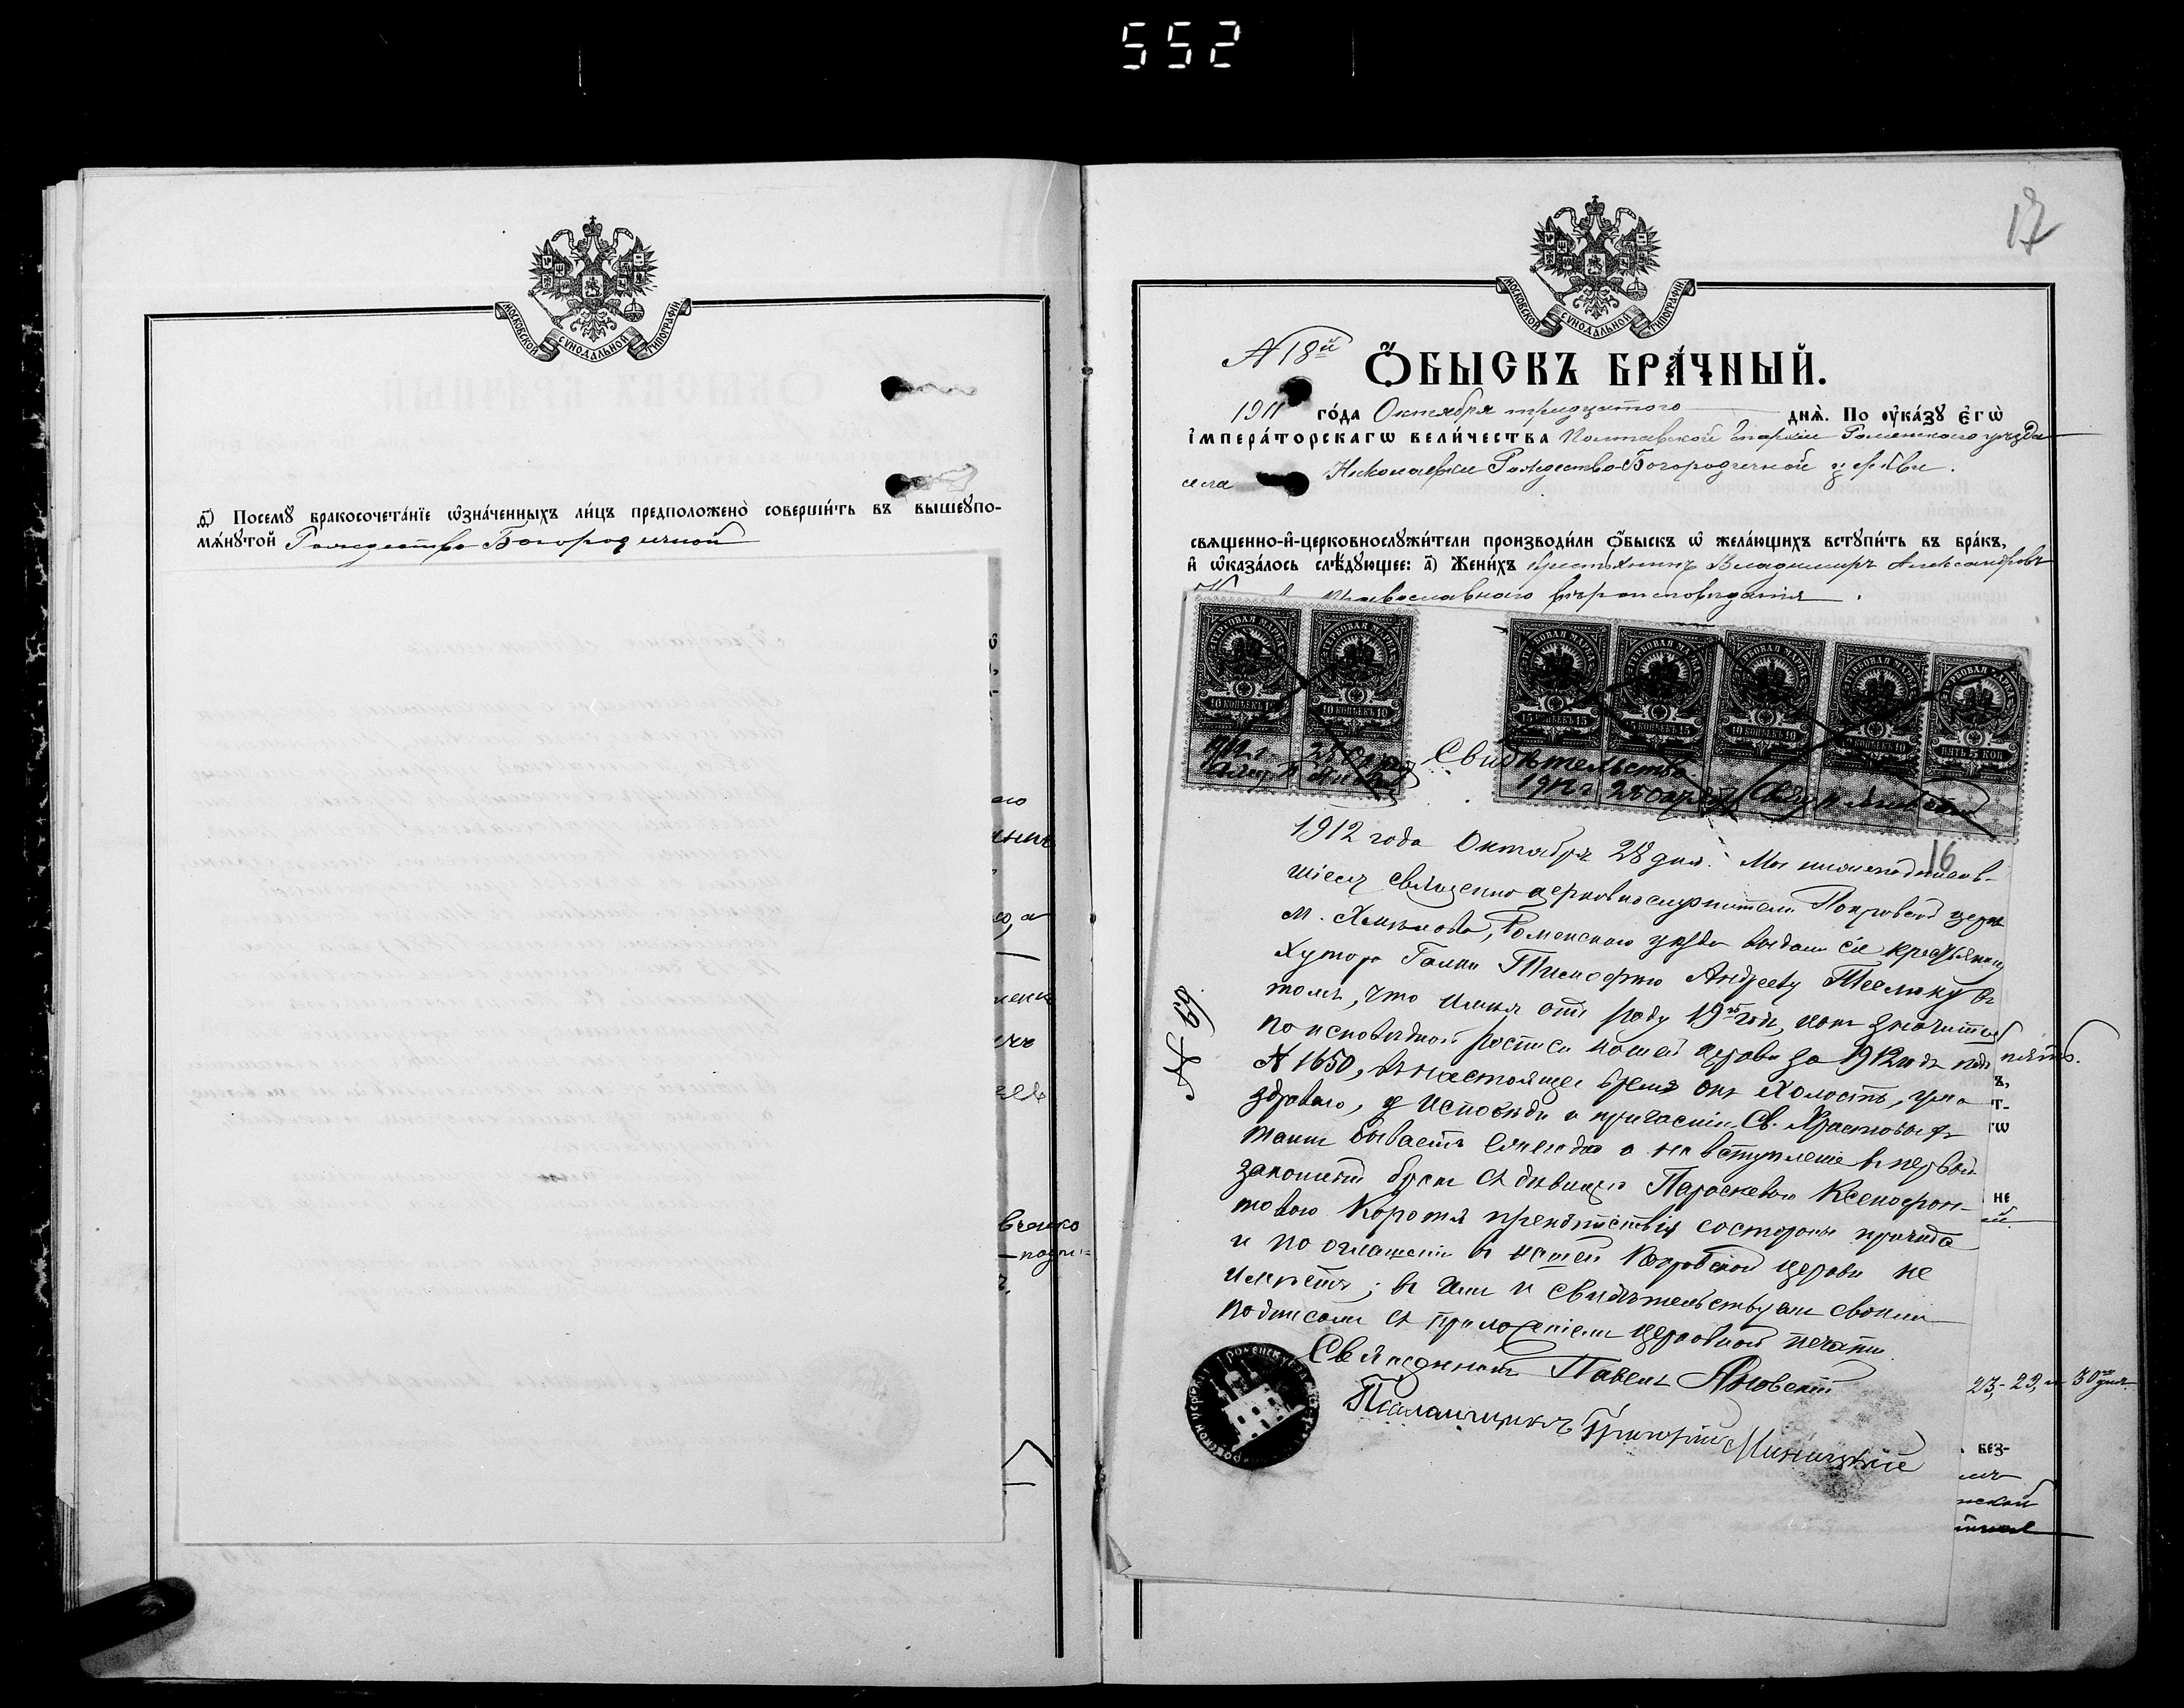 552
МОСКОВСКОЙ СѴНОДАЛЬНОЙ ТИПОГРАФІИ
д҃) Посемꙋ бракосочета́нїе ѡ҆зна́ченныхъ ли́цъ предположено̀ соверши́ть въ вышеꙋпо-
мѧ́нꙋтой Рождество Богородичной
17
МОСКОВСКОЙ СѴНОДАЛЬНОЙ ТИПОГРАФІИ
№ 18й
Ѻ҆БЫСКЪ БРА́ЧНЫЙ.
1911 го́да Октября тридцатого днѧ̀. По ᲂу҆ка́зꙋ є҆гѡ̀
і҆мпера́торскагѡ вели́чества Полтавской Епархіи Роменскаго уѣзда
села Николаевки Рождество-Богородичной церкви.
свѧщенно-и҆-церковнослꙋжи́тели производи́ли ѻ҆́быскъ ѡ҆ жела́ющихъ встꙋпи́ть въ бра́къ,
и҆ ѡ҆каза́лось слѣ́дꙋющее: а҃) Жени́хъ крестьянинъ Владимиръ Александровъ
православнаго вѣроисповѣданія.
ГЕРБОВАЯ МАРКА 10 КОПѢЕКЪ 10
ГЕРБОВАЯ МАРКА 10 КОПѢЕКЪ 10
ГЕРБОВАЯ МАРКА 15 КОПѢЕКЪ 15
ГЕРБОВАЯ МАРКА 15 КОПѢЕКЪ 15
ГЕРБОВАЯ МАРКА 10 КОПѢЕКЪ 10
ГЕРБОВАЯ МАРКА 10 КОПѢЕКЪ 10
ГЕРБОВАЯ МАРКА ПЯТЬ 5 КОП
1912 г. 28 Октяб
Свидѣтельство
1912 г 28 Октяб Свящ П Яновскій
16
1912 года Октября 28 дня. Мы нижеподписав-
шіеся священно церковнослужители Покровской церкви
м. Хмѣлова, Роменскаго уѣзда выдали сіе крестьянину
Хутора Галки Тимофею Андрееву Теслюку въ
томъ, что имѣя отъ роду 19й годъ, какъ значится
по исповѣдной росписи нашей церкви за 1912 годъ подъ
№ 1650, въ настоящее время онъ холостъ, ума
здраваго, у исповѣди и причастія Св. Христовыхъ
таинъ бываетъ ежегодно и на вступленіе въ первый
законный бракъ съ дѣвицею Параскевою Ксенофон-
товою Коротя препятствія состороны причта
и по оглашеніи въ нашей Покровской церкви не
имѣетъ; въ чемъ и свидѣтельствуемъ своими
подписами съ приложеніемъ церковной печати.
Священникъ Павелъ Яновскій
Псаломщикъ Григорій
№ 59
23,- 29, и 30го дня.
БЕЗ-